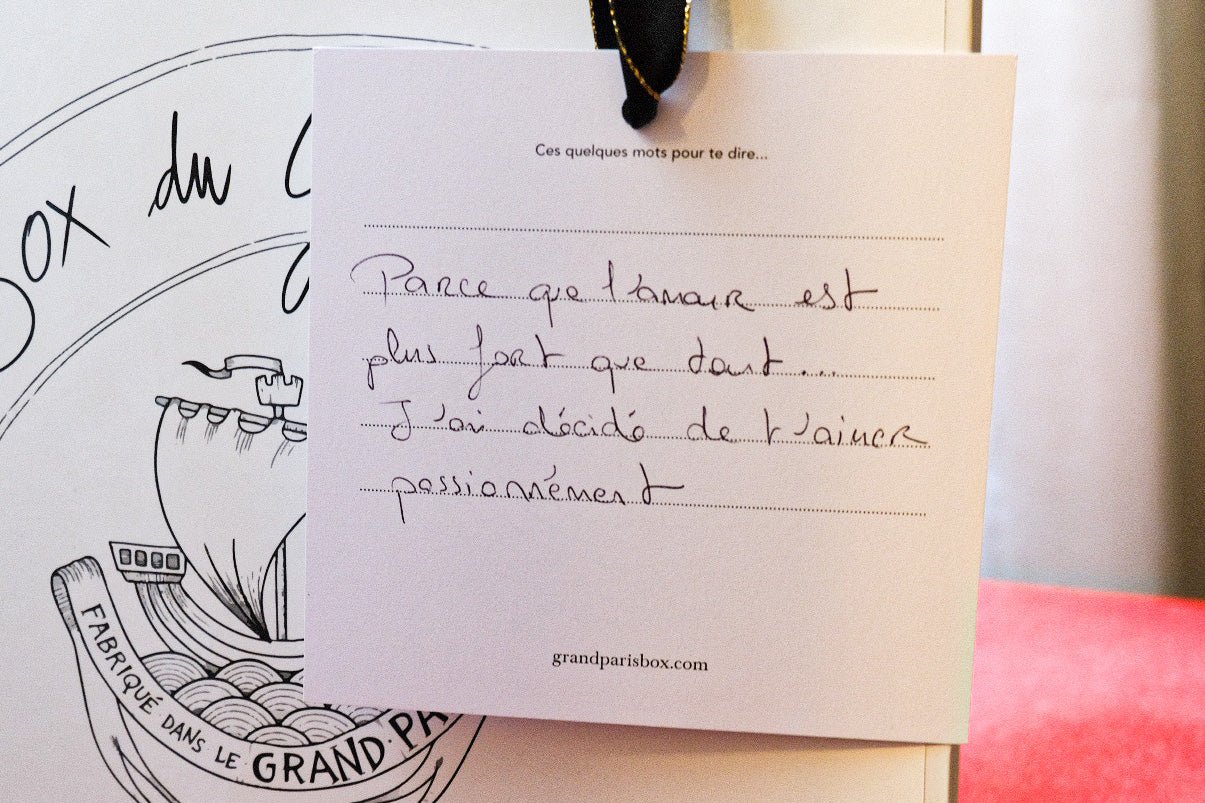 Box du
Ces quelques mots pour te dire...
Parce que l'amour est
plus fort que tout...
J'ai décidé de t'aimer
passionnément
grandparisbox.com
FABRIQUÉ DANS LE GRAND PA